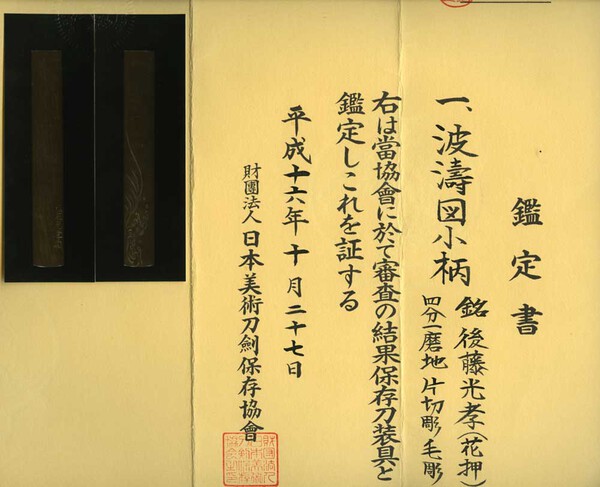 鑑定書
一、波濤図小柄 銘 後藤光孝(花押)
四分一磨地 片切彫毛彫
右は當協會に於て審査の結果保存刀装具と
鑑定しこれを証する
平成十六年十月二十七日
財團法人 日本美術刀劍保存協會